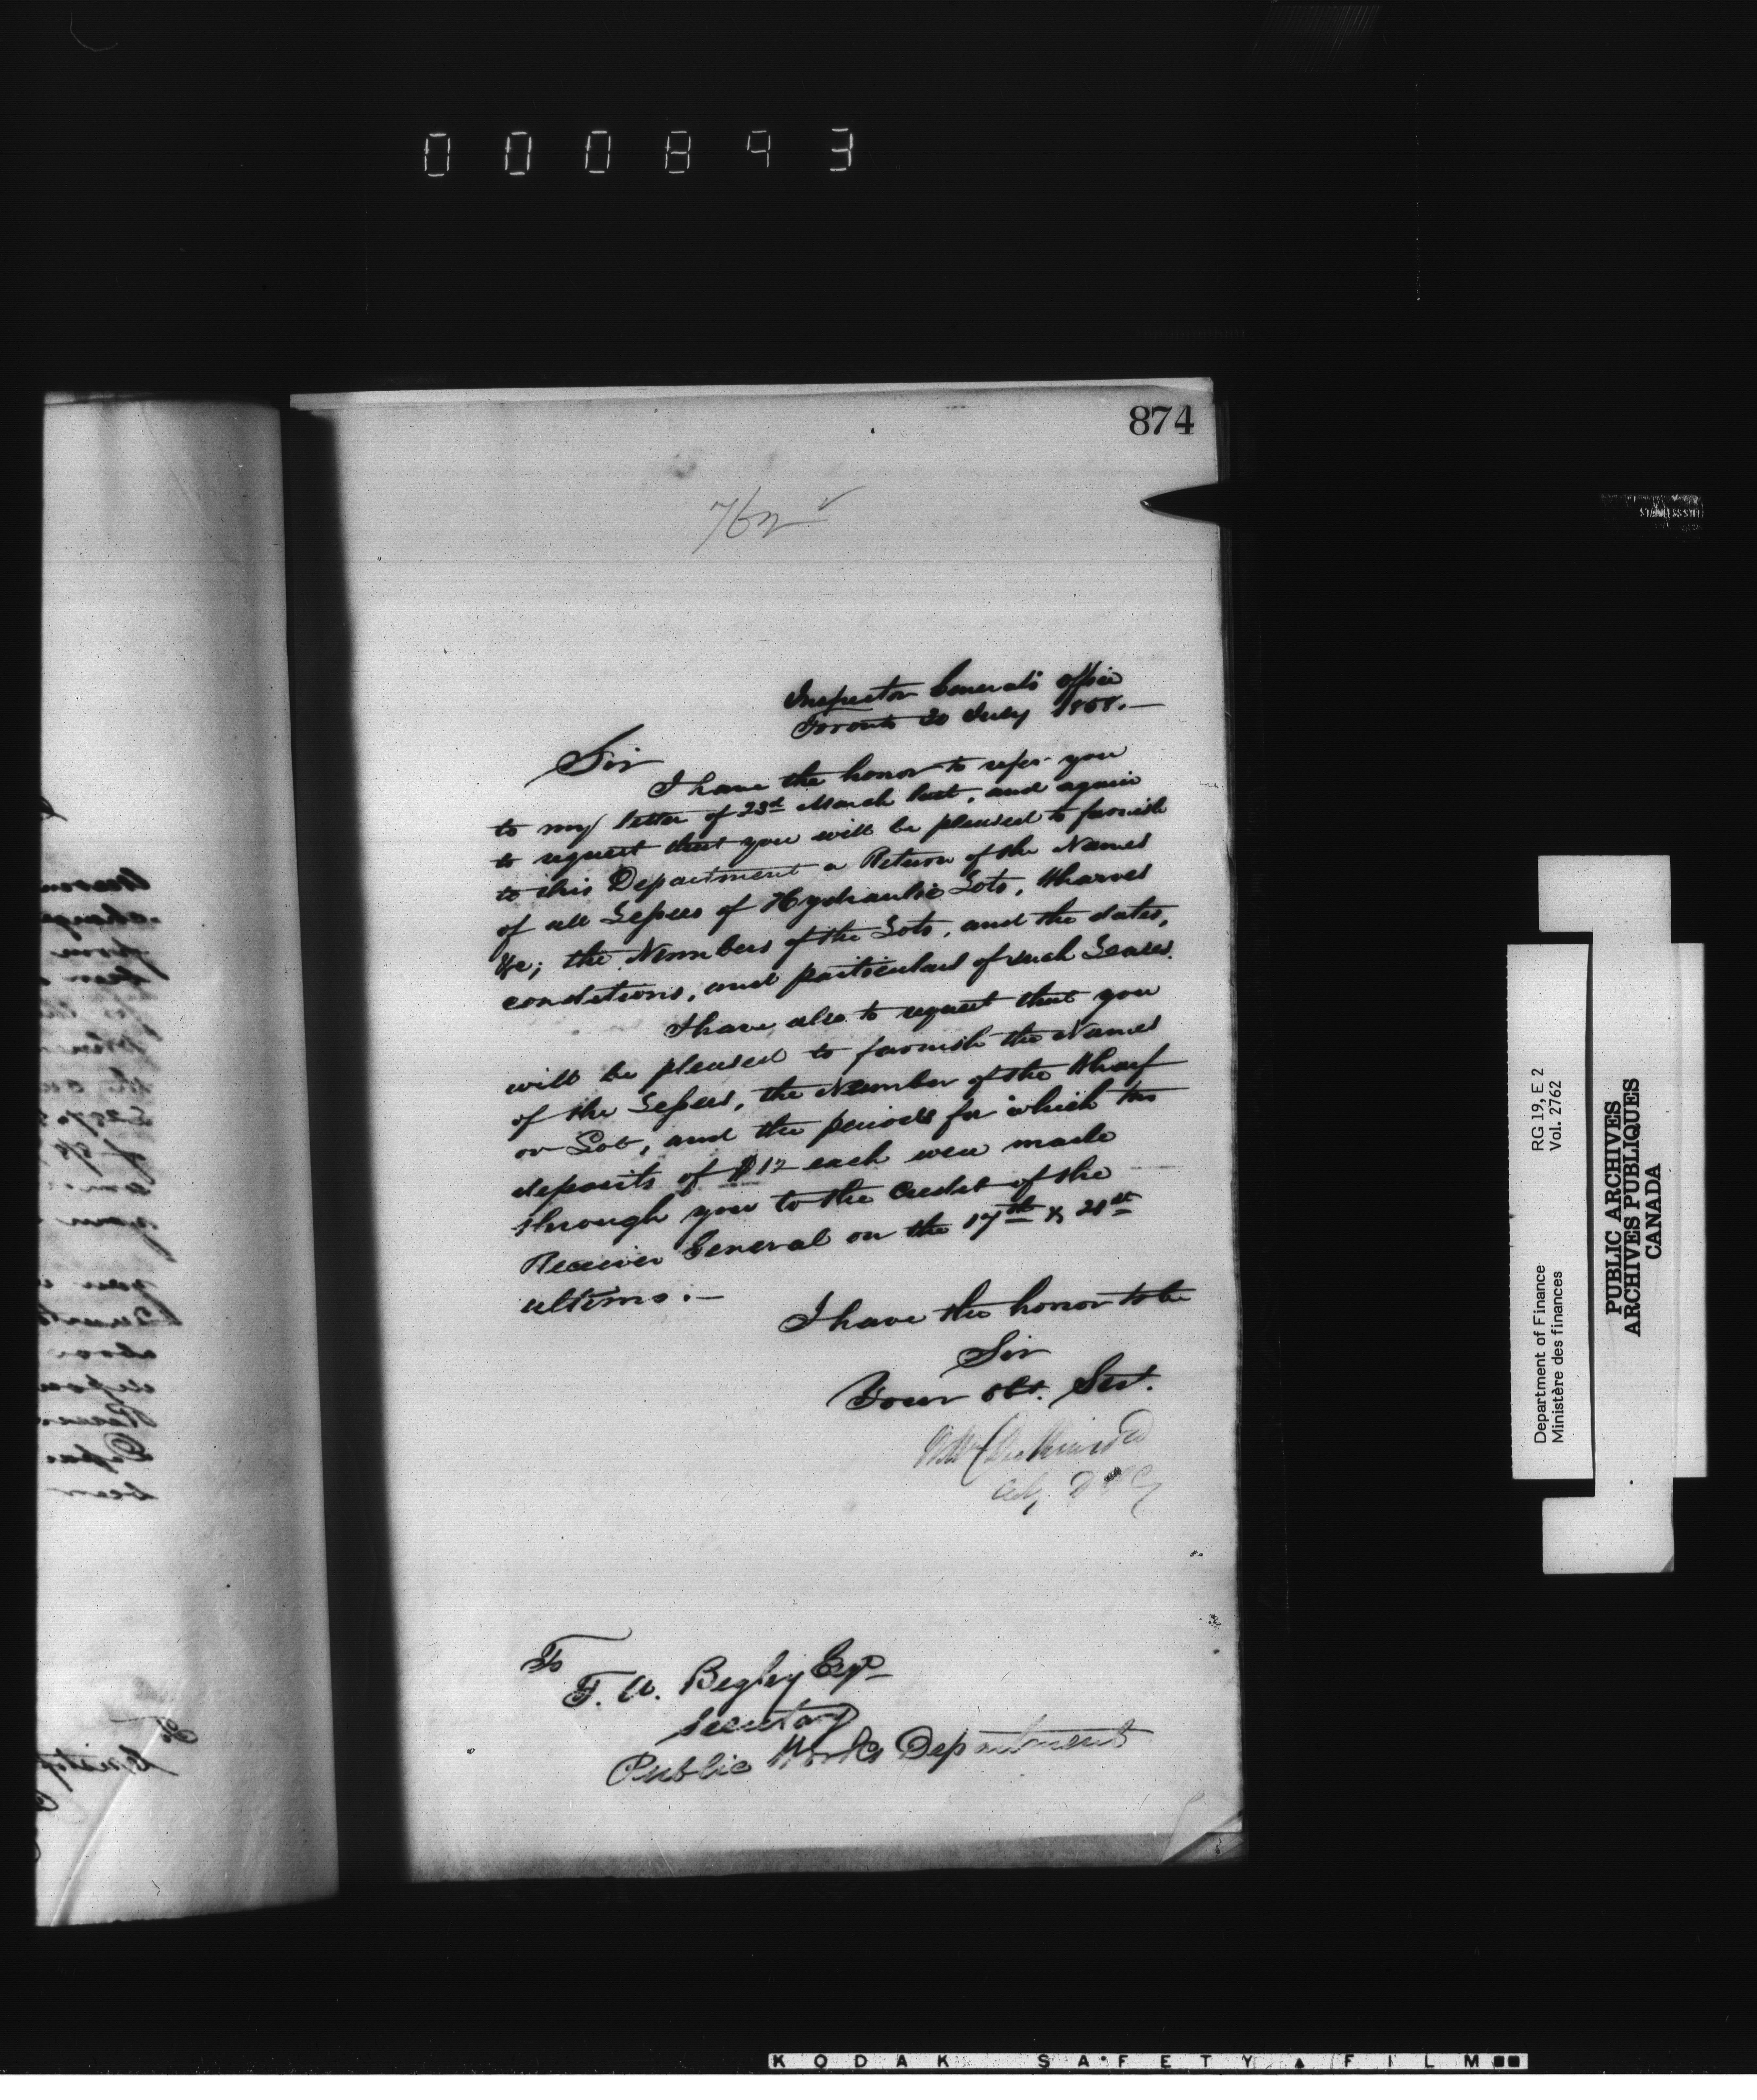 000893
874
762 ✓
Inspector General's Office
Toronto 20 July 1858.—
Sir
I have the honor to refer you
to my letter of 23rd March last, and again
to request that you will be pleased to furnish
to this Department a Return of the Names
of all Lessees of Hydraulic Lots, Wharves
&c; the Numbers of the Lots, and the dates,
conditions, and particulars of such Leases.
I have also to request that you
will be pleased to furnish the Names
of the Lessees, the Number of the Wharf
or Lot, and the periods for which two
deposits of $12 each were made
through you to the Credit of the
Receiver General on the 17th & 21st
ultimo.—
I have the honor to be
Sir
Your Obt. Sert.
To
T. A. Begley Esqr
Secretary
Public Works Department
Department of Finance RG 19, E 2
Ministère des finances Vol. 2762
PUBLIC ARCHIVES
ARCHIVES PUBLIQUES
CANADA
STAINLESS STEEL
KODAK SAFETY FILM